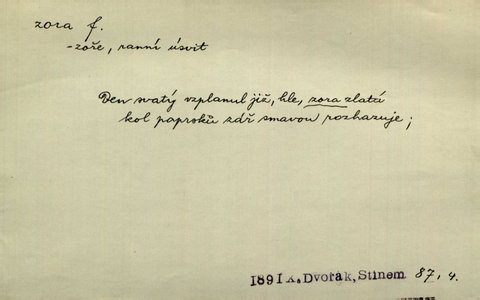 zora f.
-zóře, ranní úsvit
Den svatý vzplanul již, hle, zora zlatá
kol paprsků zář smavou rozhazuje;
1891 X. Dvořák, Stínem 87, 4.